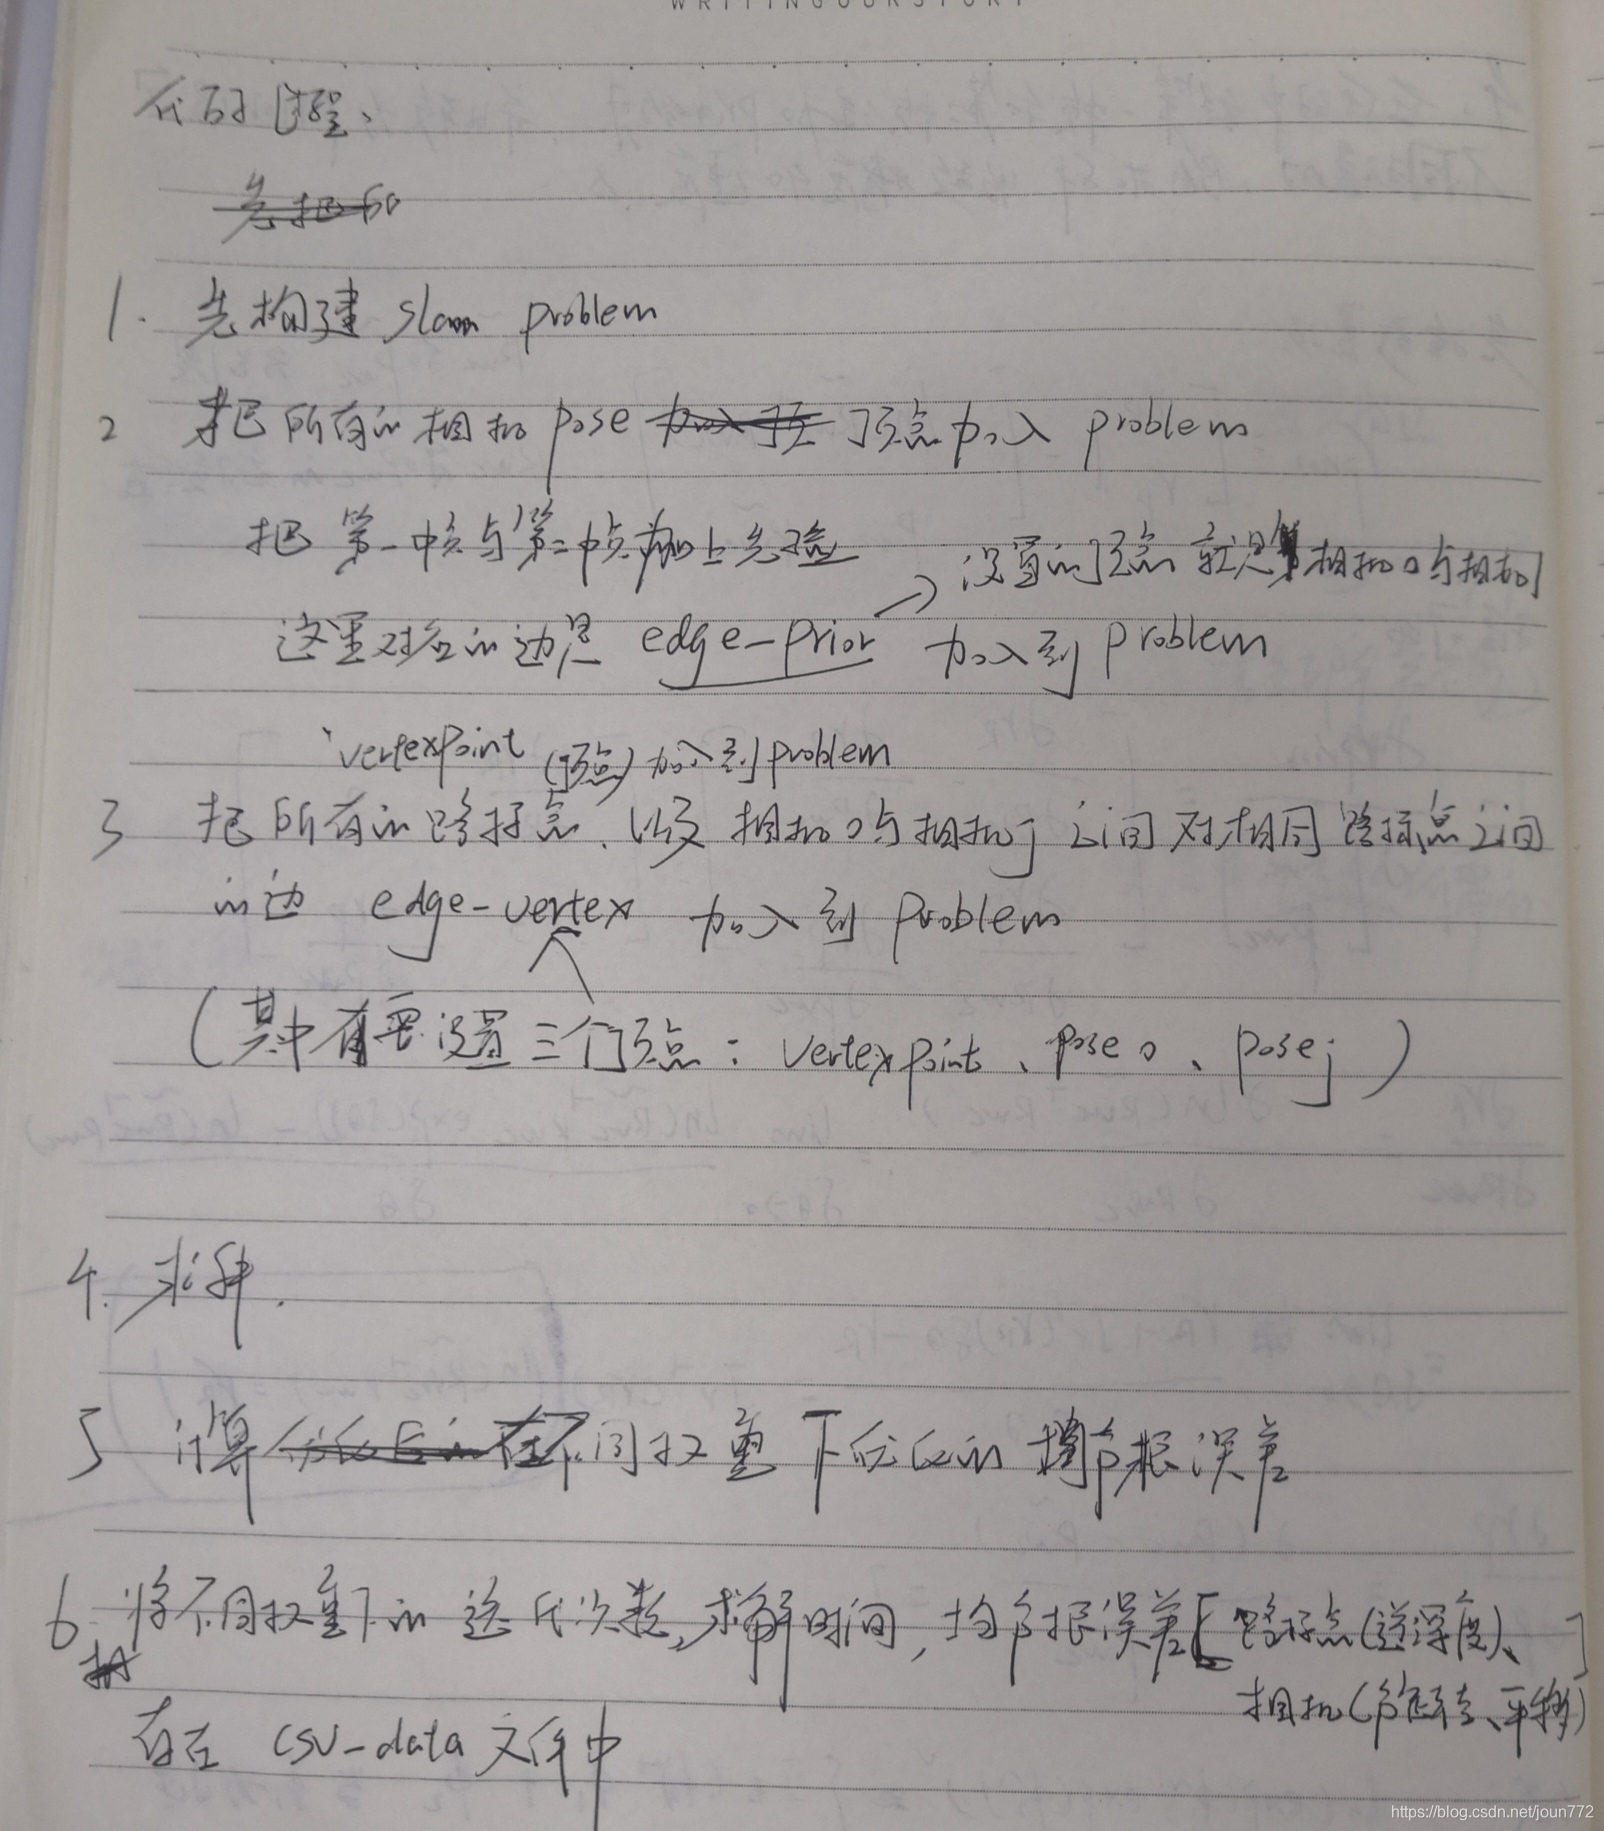 WRITINGOURSTORY
代码过程、
先把加
1. 先构建 slam problem
2 把所有的相机 pose 加入顶 顶点加入 problem
把第一帧与第二帧加上先验
→ 设置的顶点就是相机0与相机1
这里对应的边是 edge-prior 加入到 problem
vertexPoint (顶点) 加入到 problem
3 把所有的路标点、以及相机0与相机j之间对相同路标点之间
的边 edge-vertex 加入到 problem
(其中需要设置三个顶点: vertexpoint、pose0、posej)
4. 求解.
5 计算优化后的在不同权重下优化的均方根误差
6. 将不同权重下的迭代次数,求解时间,均方根误差[路标点(逆深度)、
相机(旋转、平移)]
存在 csv-data 文件中
https://blog.csdn.net/joun772